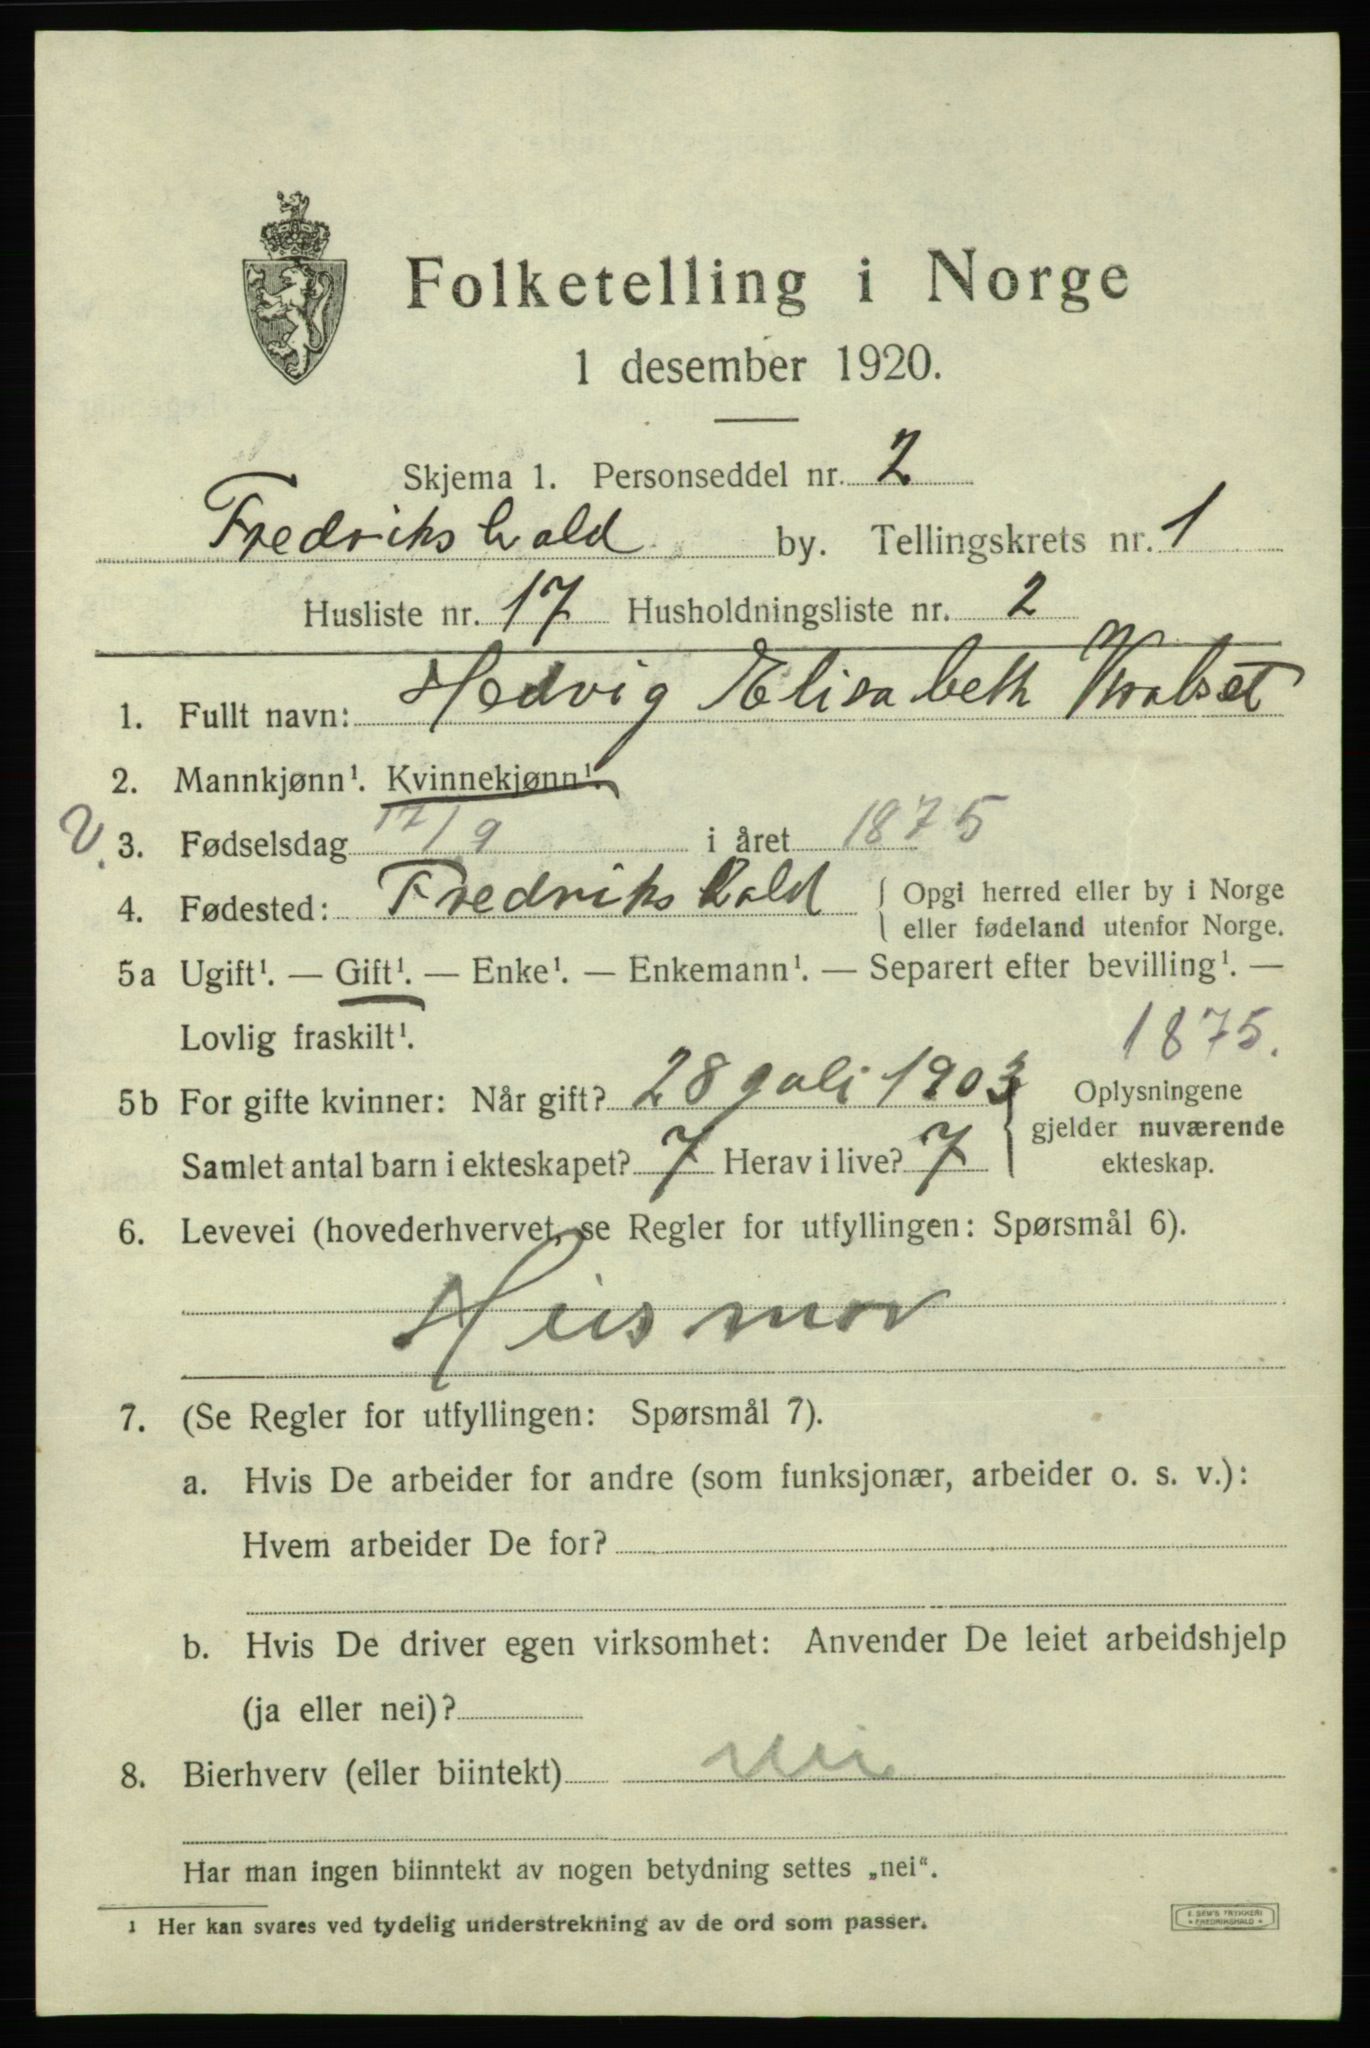 Folketelling i Norge
1 desember 1920.
Skjema 1. Personseddel nr. 2
Fredrikshald by. Tellingskrets nr. 1
Husliste nr. 17 Husholdningsliste nr. 2
1. Fullt navn: Hedvig Elisabeth
2. Mannkjønn¹. Kvinnekjønn¹.
3. Fødselsdag 17/9 i året 1875
4. Fødested: Fredrikshald { Opgi herred eller by i Norge
eller fødeland utenfor Norge.
5a Ugift¹. — Gift¹. — Enke¹. — Enkemann¹. — Separert efter bevilling¹. —
Lovlig fraskilt¹.
1875.
5b For gifte kvinner: Når gift? 28 juli 1903 { Oplysningene
gjelder nuværende
Samlet antal barn i ekteskapet? 7 Herav i live? 7 ekteskap.
6. Levevei (hovederhvervet, se Regler for utfyllingen: Spørsmål 6).
Husmor
7. (Se Regler for utfyllingen: Spørsmål 7).
a. Hvis De arbeider for andre (som funksjonær, arbeider o. s. v.):
Hvem arbeider De for?
b. Hvis De driver egen virksomhet: Anvender De leiet arbeidshjelp
(ja eller nei)?
8. Bierhverv (eller biintekt) nei
Har man ingen biinntekt av nogen betydning settes „nei“.
¹ Her kan svares ved tydelig understrekning av de ord som passer.
E. SEM'S TRYKKERI
* FREDRIKSHALD *